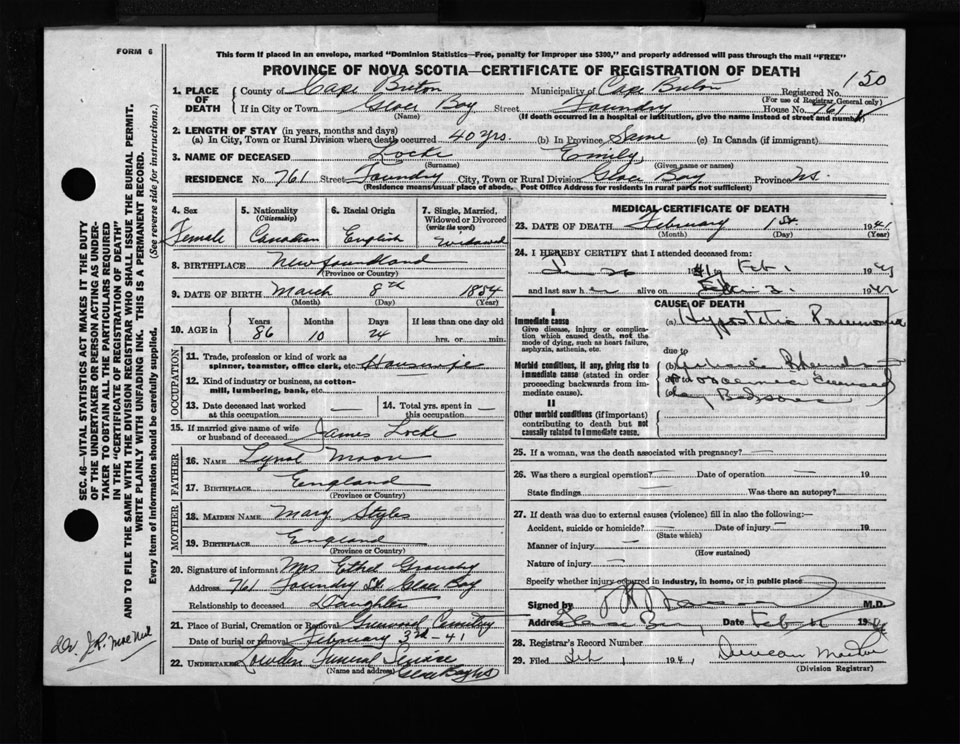 FORM 6
This form if placed in an envelope, marked "Dominion Statistics—Free, penalty for improper use $300," and properly addressed will pass through the mail "FREE"
PROVINCE OF NOVA SCOTIA—CERTIFICATE OF REGISTRATION OF DEATH
150
1. PLACE OF DEATH
County of Cape Breton Municipality of Cape Breton Registered No.
(For use of Registrar General only)
If in City or Town Glace Bay Street Foundry House No. 761
(Name) (If death occurred in a hospital or institution, give the name instead of street and number)
2. LENGTH OF STAY (in years, months and days)
(a) In City, Town or Rural Division where death occurred 40 yrs. (b) In Province Same (c) In Canada (if immigrant)
3. NAME OF DECEASED Locke Emily
(Surname) (Given name or names)
RESIDENCE No. 761 Street Foundry City, Town or Rural Division Glace Bay Province N.S.
(Residence means usual place of abode. Post Office Address for residents in rural parts not sufficient)
4. Sex Female
5. Nationality (Citizenship) Canadian
6. Racial Origin English
7. Single, Married, Widowed or Divorced (write the word) Widowed
8. BIRTHPLACE Newfoundland
(Province or Country)
9. DATE OF BIRTH March 8th 1854
(Month) (Day) (Year)
10. AGE in Years Months Days If less than one day old
86 10 24 hrs. or min.
OCCUPATION
11. Trade, profession or kind of work as spinner, teamster, office clerk, etc. Housewife
12. Kind of industry or business, as cotton-mill, lumbering, bank, etc.
13. Date deceased last worked at this occupation —
14. Total yrs. spent in this occupation —
15. If married give name of wife or husband of deceased James Locke
FATHER
16. NAME Moore
17. BIRTHPLACE England
(Province or Country)
MOTHER
18. MAIDEN NAME Mary Styles
19. BIRTHPLACE England
(Province or Country)
20. Signature of informant Mrs Ethel
Address 761 Foundry St. Glace Bay
Relationship to deceased Daughter
21. Place of Burial, Cremation or Removal Greenwood Cemetery
Date of burial or removal February 3rd - 41
22. UNDERTAKER Funeral Service
(Name and address) Glace Bay NS
MEDICAL CERTIFICATE OF DEATH
23. DATE OF DEATH February 1st 1941
(Month) (Day) (Year)
24. I HEREBY CERTIFY that I attended deceased from:
Jan 26 1941 to Feb 1 1941
and last saw her alive on 19
CAUSE OF DEATH
I
Immediate cause
Give disease, injury or complication which caused death, not the mode of dying, such as heart failure, asphyxia, asthenia, etc.
(a) Hypostatic Pneumonia
due to
Morbid conditions, if any, giving rise to immediate cause (stated in order proceeding backwards from immediate cause).
(b)
(c) Bedsores
II
Other morbid conditions (if important) contributing to death but not causally related to immediate cause.
25. If a woman, was the death associated with pregnancy? —
26. Was there a surgical operation? — Date of operation — 19
State findings Was there an autopsy?
27. If death was due to external causes (violence) fill in also the following:—
Accident, suicide or homicide? — Date of injury — 19
(State which)
Manner of injury —
(How sustained)
Nature of injury —
Specify whether injury occurred in industry, in home, or in public place
Signed by M.D.
Address Glace Bay Date Feb 19
28. Registrar's Record Number
29. Filed Feb 1 1941 Duncan
(Division Registrar)
SEC. 46—VITAL STATISTICS ACT MAKES IT THE DUTY
OF THE UNDERTAKER OR PERSON ACTING AS UNDER-
TAKER TO OBTAIN ALL THE PARTICULARS REQUIRED
IN THE "CERTIFICATE OF REGISTRATION OF DEATH"
AND TO FILE THE SAME WITH THE DIVISION REGISTRAR WHO SHALL ISSUE THE BURIAL PERMIT.
WRITE PLAINLY WITH UNFADING INK. THIS IS A PERMANENT RECORD.
Every item of information should be carefully supplied. (See reverse side for instructions.)
Dr. J.R. MacNeil